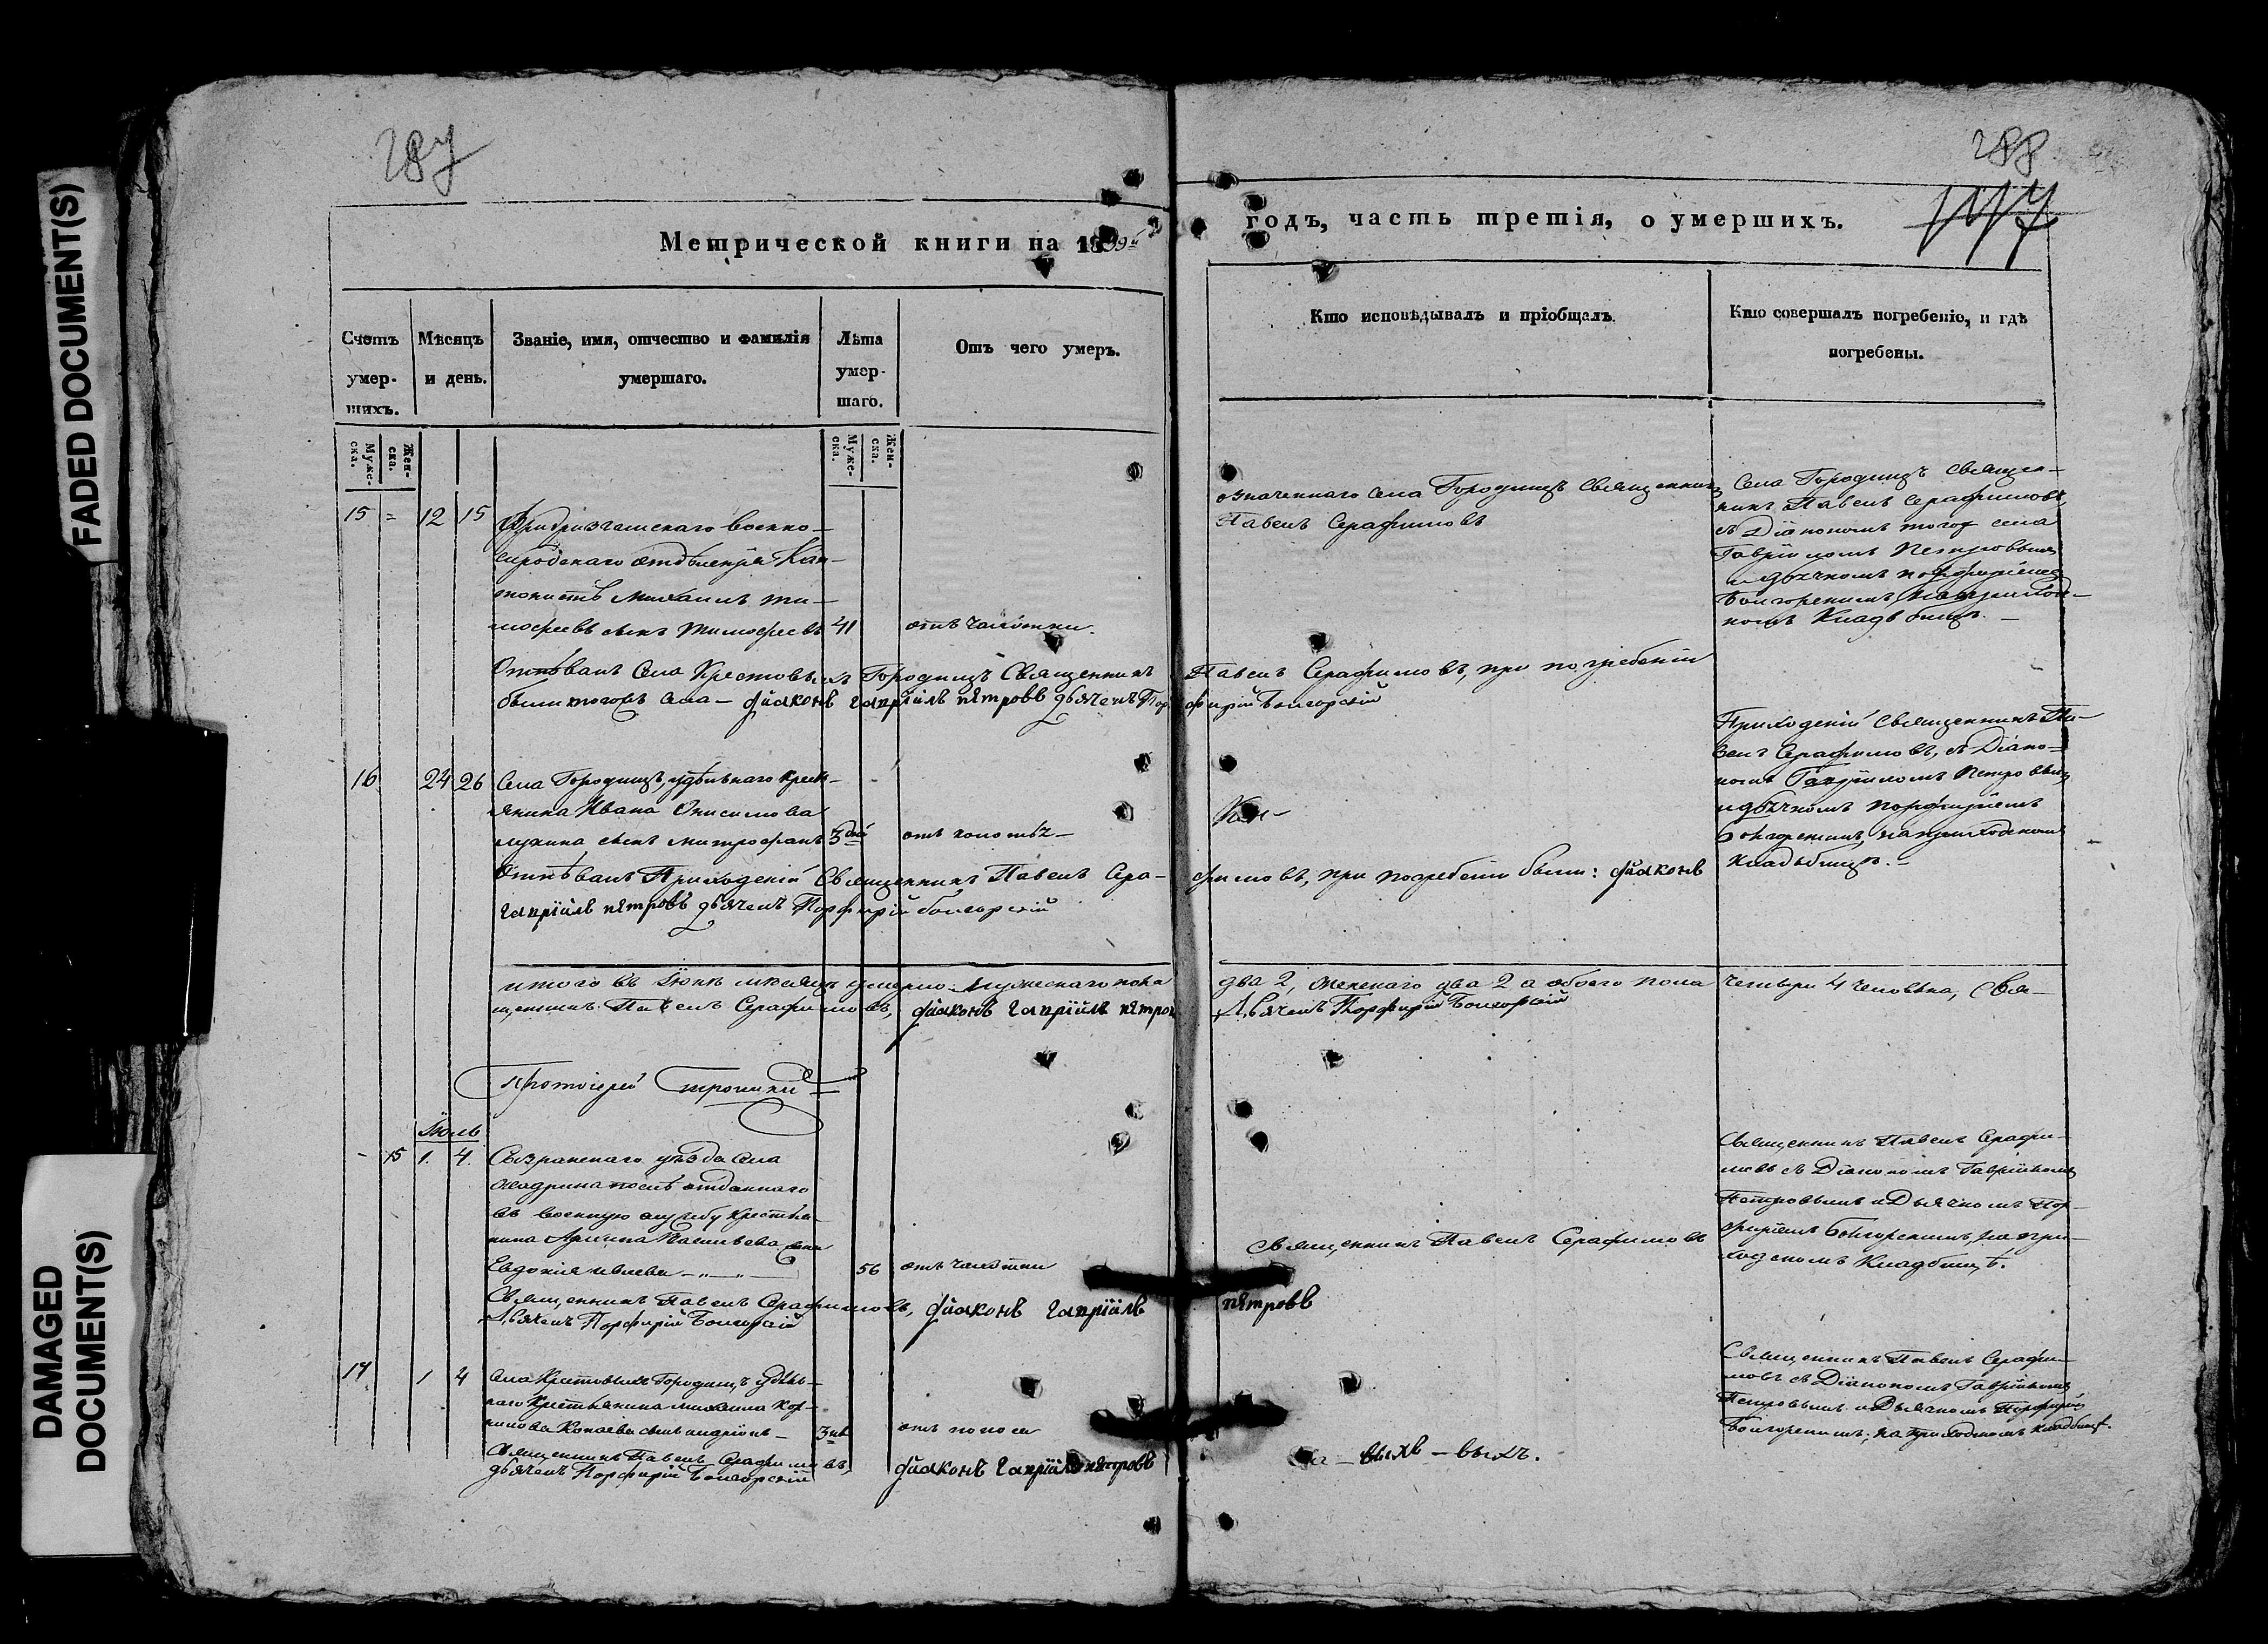 FADED DOCUMENT(S)
DAMAGED
DOCUMENT(S)
287
288
Метрической книги на 18
годъ, часть третія, о умершихъ.
Счетъ умер-шихъ.
Мѣсяцъ и день.
Званіе, имя, отчество и фамилія умершаго.
Лѣта умер-шаго.
Отъ чего умеръ.
Кто исповѣдывалъ и пріобщалъ.
Кто совершалъ погребеніе, и гдѣ погребены.
Муже-ска.
Жен-ска.
Муже-ска.
Жен-ска.
15 = 12 15
отдѣленія Кан-
тонистъ Михаилъ Ти-
мофеевъ сынъ Тимофеевъ 41 отъ чахотки.
означеннаго села Городищъ Священникъ
Павелъ Серафимовъ
Села Городищъ Священ-
никъ Павелъ Серафимовъ,
съ Діакономъ тогож села
Гавріиломъ Петровымъ
и дьячкомъ Порфиріемъ
Болгорскимъ, на приход-
комъ Кладбищѣ. –
Отпѣванъ Села Крестовыхъ Городищъ Священникъ Павелъ Серафимовъ, при погребеніи
были тогожъ села – діаконъ гавріилъ пѣтровъ дьячекъ Порфирій Болгорскій
16 24 26 Села Городищъ удѣльнаго крест-
янина Ивана Онисимова
сынъ Митрофанъ 3 дней
Приходскій Священникъ Па-
велъ Серафимовъ, съ Діако-
номъ Гавріиломъ Петровымъ,
и дьячкомъ Порфиріемъ
Болгорскимъ, на приходскомъ
кладбищѣ. –
Отпѣванъ Приходскій Священникъ Павелъ Сера-фимовъ, при погребеніи были: діаконъ
гавріилъ пѣтровъ дьячекъ Порфирій Болгорскій
итого въ Іюнѣ мѣсяцѣ умерло Мужескаго пола два 2, женскаго два 2 а обоего пола четыри 4 человѣка, Свя-
щенникъ Павелъ Серафимовъ, діаконъ гавріилъ пѣтров
Дьячекъ Порфирій Болгорскій
Протоіерей
Іюль
– 15 1. 4. Сызранскаго уѣзда села
отданнаго
въ военную службу крестья-
нина жена
Евдокія 56 отъ чахотки
Священникъ Павелъ Серафимовъ
Священникъ Павелъ Серафи-
мовъ съ Діакономъ Гавріиломъ
Петровымъ и Дьячкомъ Пор-
фиріемъ Болгорскимъ, на при-
ходскомъ Кладбищѣ.
Священникъ Павелъ Серафимовъ, діаконъ гавріилъ пѣтровъ
Дьячекъ Порфирій Болгорскій
17 1 4 Села Крестовыхъ Городищъ удѣль-
наго Крестьянина Михаила Кор-
нилова сынъ 3 нед отъ поноса
Священникъ Павелъ Серафи-
мовъ съ Діакономъ Гавріиломъ
Петровымъ и Дьячкомъ Порфиріемъ
Болгорскимъ, на приходскомъ кладбищѣ.
Священникъ Павелъ Серафимовъ, діаконъ гавріилъ пѣтровъ
дьячекъ Порфирій Болгорскій